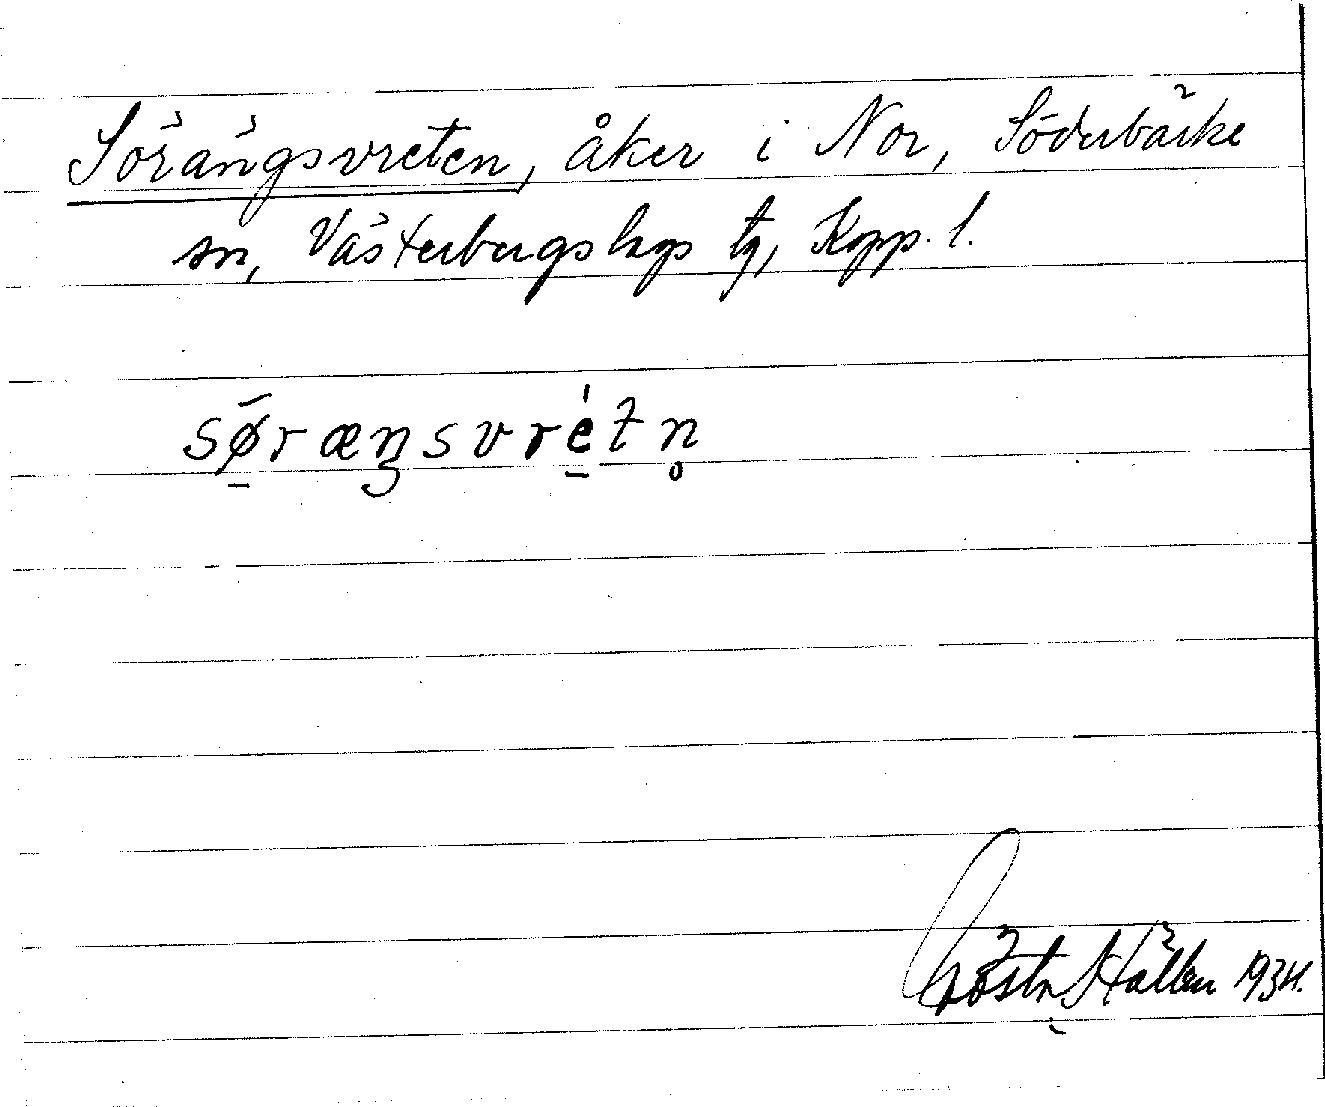 Sörängsvreten, åker i Nor, Söderbärke
sn, Västerbergslags tg, Kopp. l.
sø̠̄ræŋsvré̠tn̥
1934.